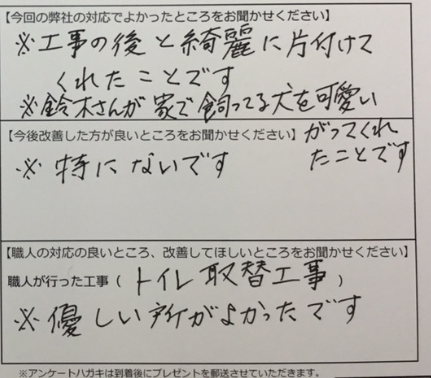 【今回の弊社の対応でよかったところをお聞かせください】
※工事の後と綺麗に片付けて
くれたことです
※鈴木さんが家で飼ってる犬を可愛い
がってくれ
たことです
【今後改善した方が良いところをお聞かせください】
※特にないです
【職人の対応の良いところ、改善してほしいところをお聞かせください】
職人が行った工事（トイレ取替工事）
※優しい所がよかったです
※アンケートハガキは到着後にプレゼントを郵送させていただきます。